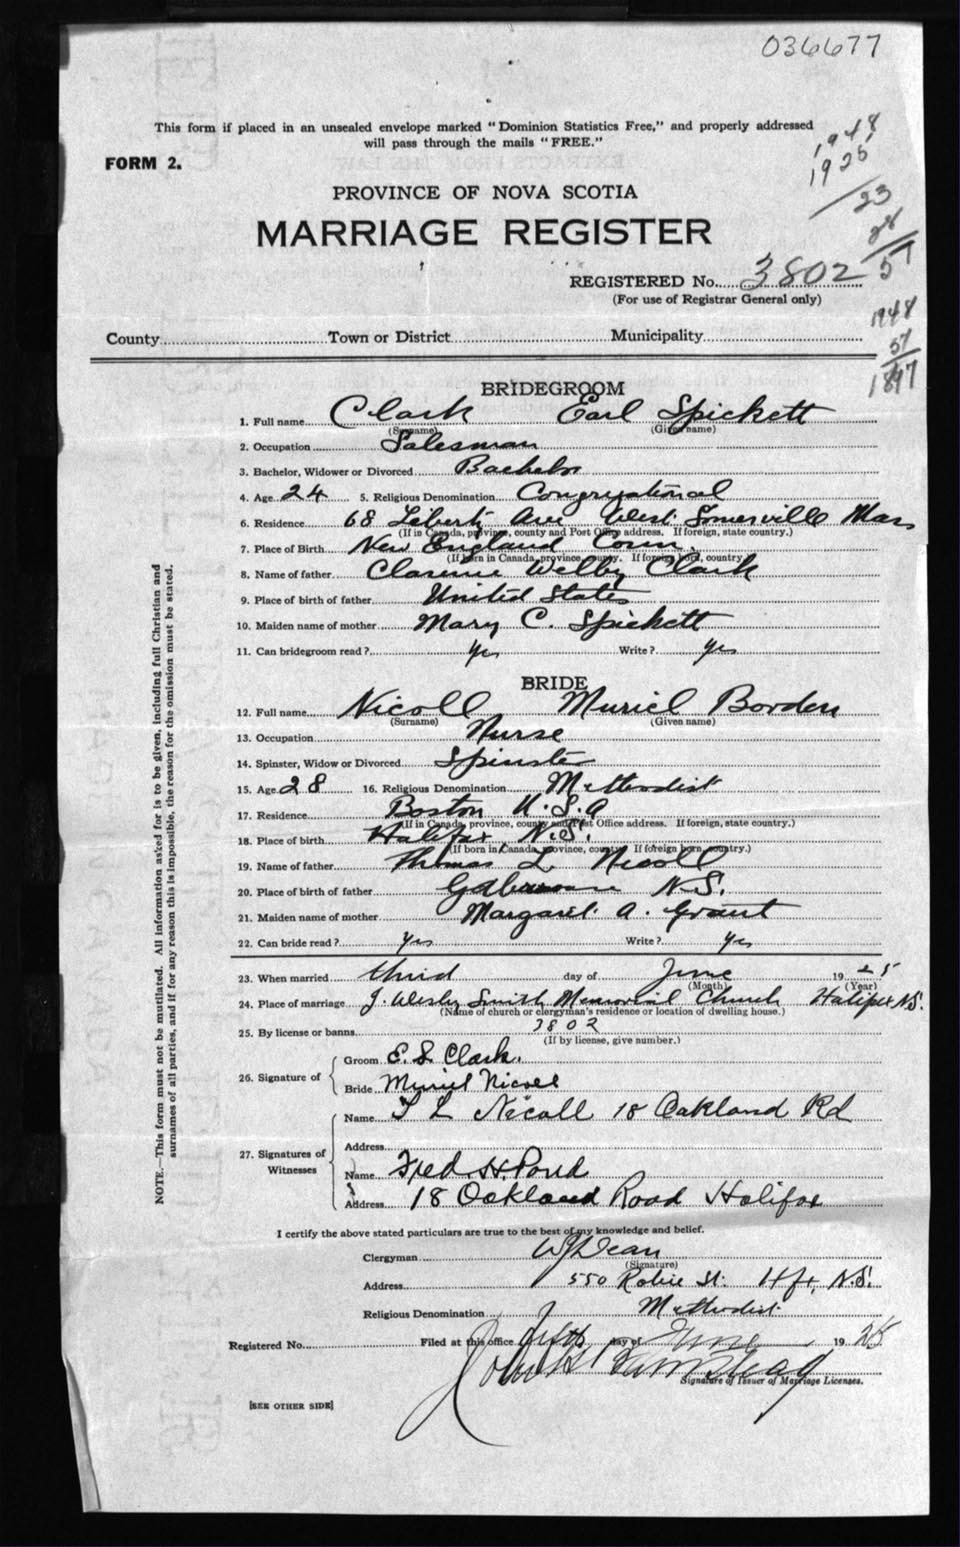 036677
This form if placed in an unsealed envelope marked "Dominion Statistics Free," and properly addressed
will pass through the mails "FREE."
FORM 2.
1948
1925
23
28
51
PROVINCE OF NOVA SCOTIA
MARRIAGE REGISTER
REGISTERED No. 3802
(For use of Registrar General only)
1948
51
1897
County Town or District Municipality
BRIDEGROOM
1. Full name Clark Earl Spickett
(Surname) (Given name)
2. Occupation Salesman
3. Bachelor, Widower or Divorced Bachelor
4. Age 24 5. Religious Denomination Congregational
6. Residence 68 Liberty Ave West Somerville Mass
(If in Canada, province, county and Post Office address. If foreign, state country.)
7. Place of Birth New England Conn.
(If born in Canada, province, county. If foreign born, country.)
8. Name of father Clarence Welby Clark
9. Place of birth of father United States
10. Maiden name of mother Mary C. Spickett
11. Can bridegroom read? Yes Write? yes
BRIDE
12. Full name Nicoll Muriel Borden
(Surname) (Given name)
13. Occupation Nurse
14. Spinster, Widow or Divorced Spinster
15. Age 28 16. Religious Denomination Methodist
17. Residence Boston U.S.A
(If in Canada, province, county and Post Office address. If foreign, state country.)
18. Place of birth Halifax N.S.
(If born in Canada, province, county. If foreign born, country.)
19. Name of father Thomas L. Nicoll
20. Place of birth of father N.S.
21. Maiden name of mother Margaret A. Grant
22. Can bride read? Yes Write? Yes
23. When married third day of June 1925
(Month) (Year)
24. Place of marriage J. Wesley Smith Memorial Church Halifax N.S.
(Name of church or clergyman's residence or location of dwelling house.)
25. By license or banns 3802
(If by license, give number.)
26. Signature of Groom E. S. Clark.
Bride Muriel Nicoll
27. Signatures of Witnesses
Name T L Nicoll 18 Oakland Rd
Address
Name Fred. H. Pond
Address 18 Oakland Road Halifax
I certify the above stated particulars are true to the best of my knowledge and belief.
Clergyman W J Dean
(Signature)
Address 550 Robie St. Hfx, N.S.
Religious Denomination Methodist
Registered No. Filed at this office fifth day of June 1925
Signature of Issuer of Marriage Licenses.
[SEE OTHER SIDE]
NOTE.—This form must not be mutilated. All information asked for is to be given, including full Christian and
surnames of all parties, and if for any reason this is impossible, the reason for the omission must be stated.